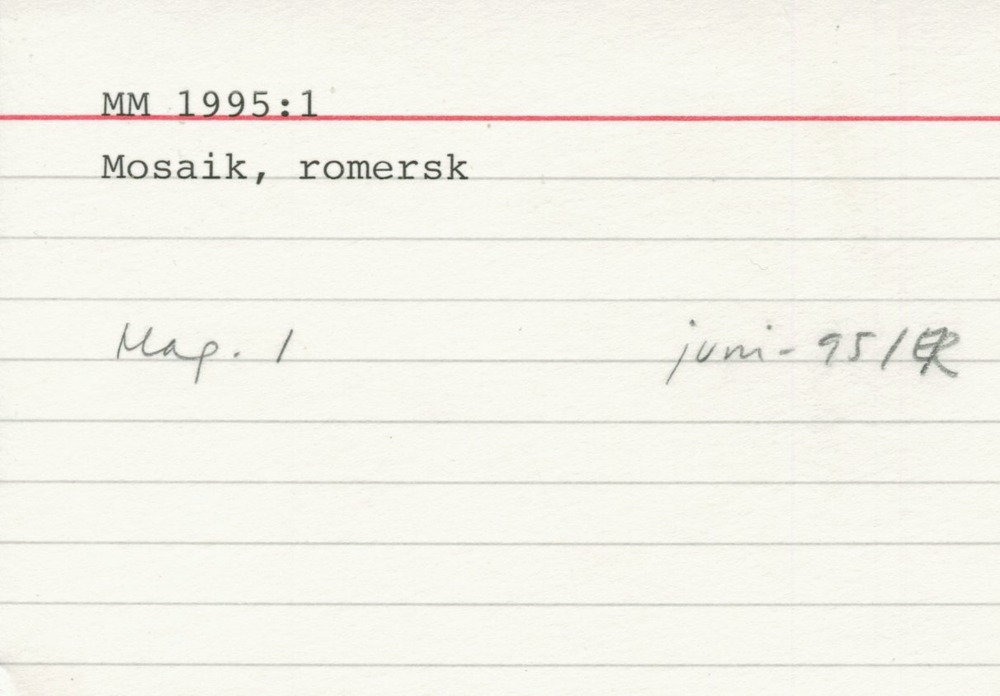 MM 1995:1
Mosaik, romersk
Mag. 1 juni-95/ER